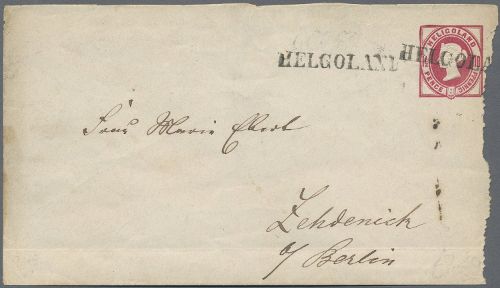 HELGOLAND
HELGOLA
HELIGOLAND
PENCE
PFENNIG
Frau Marie Ebert
Zehdenick
b/ Berlin